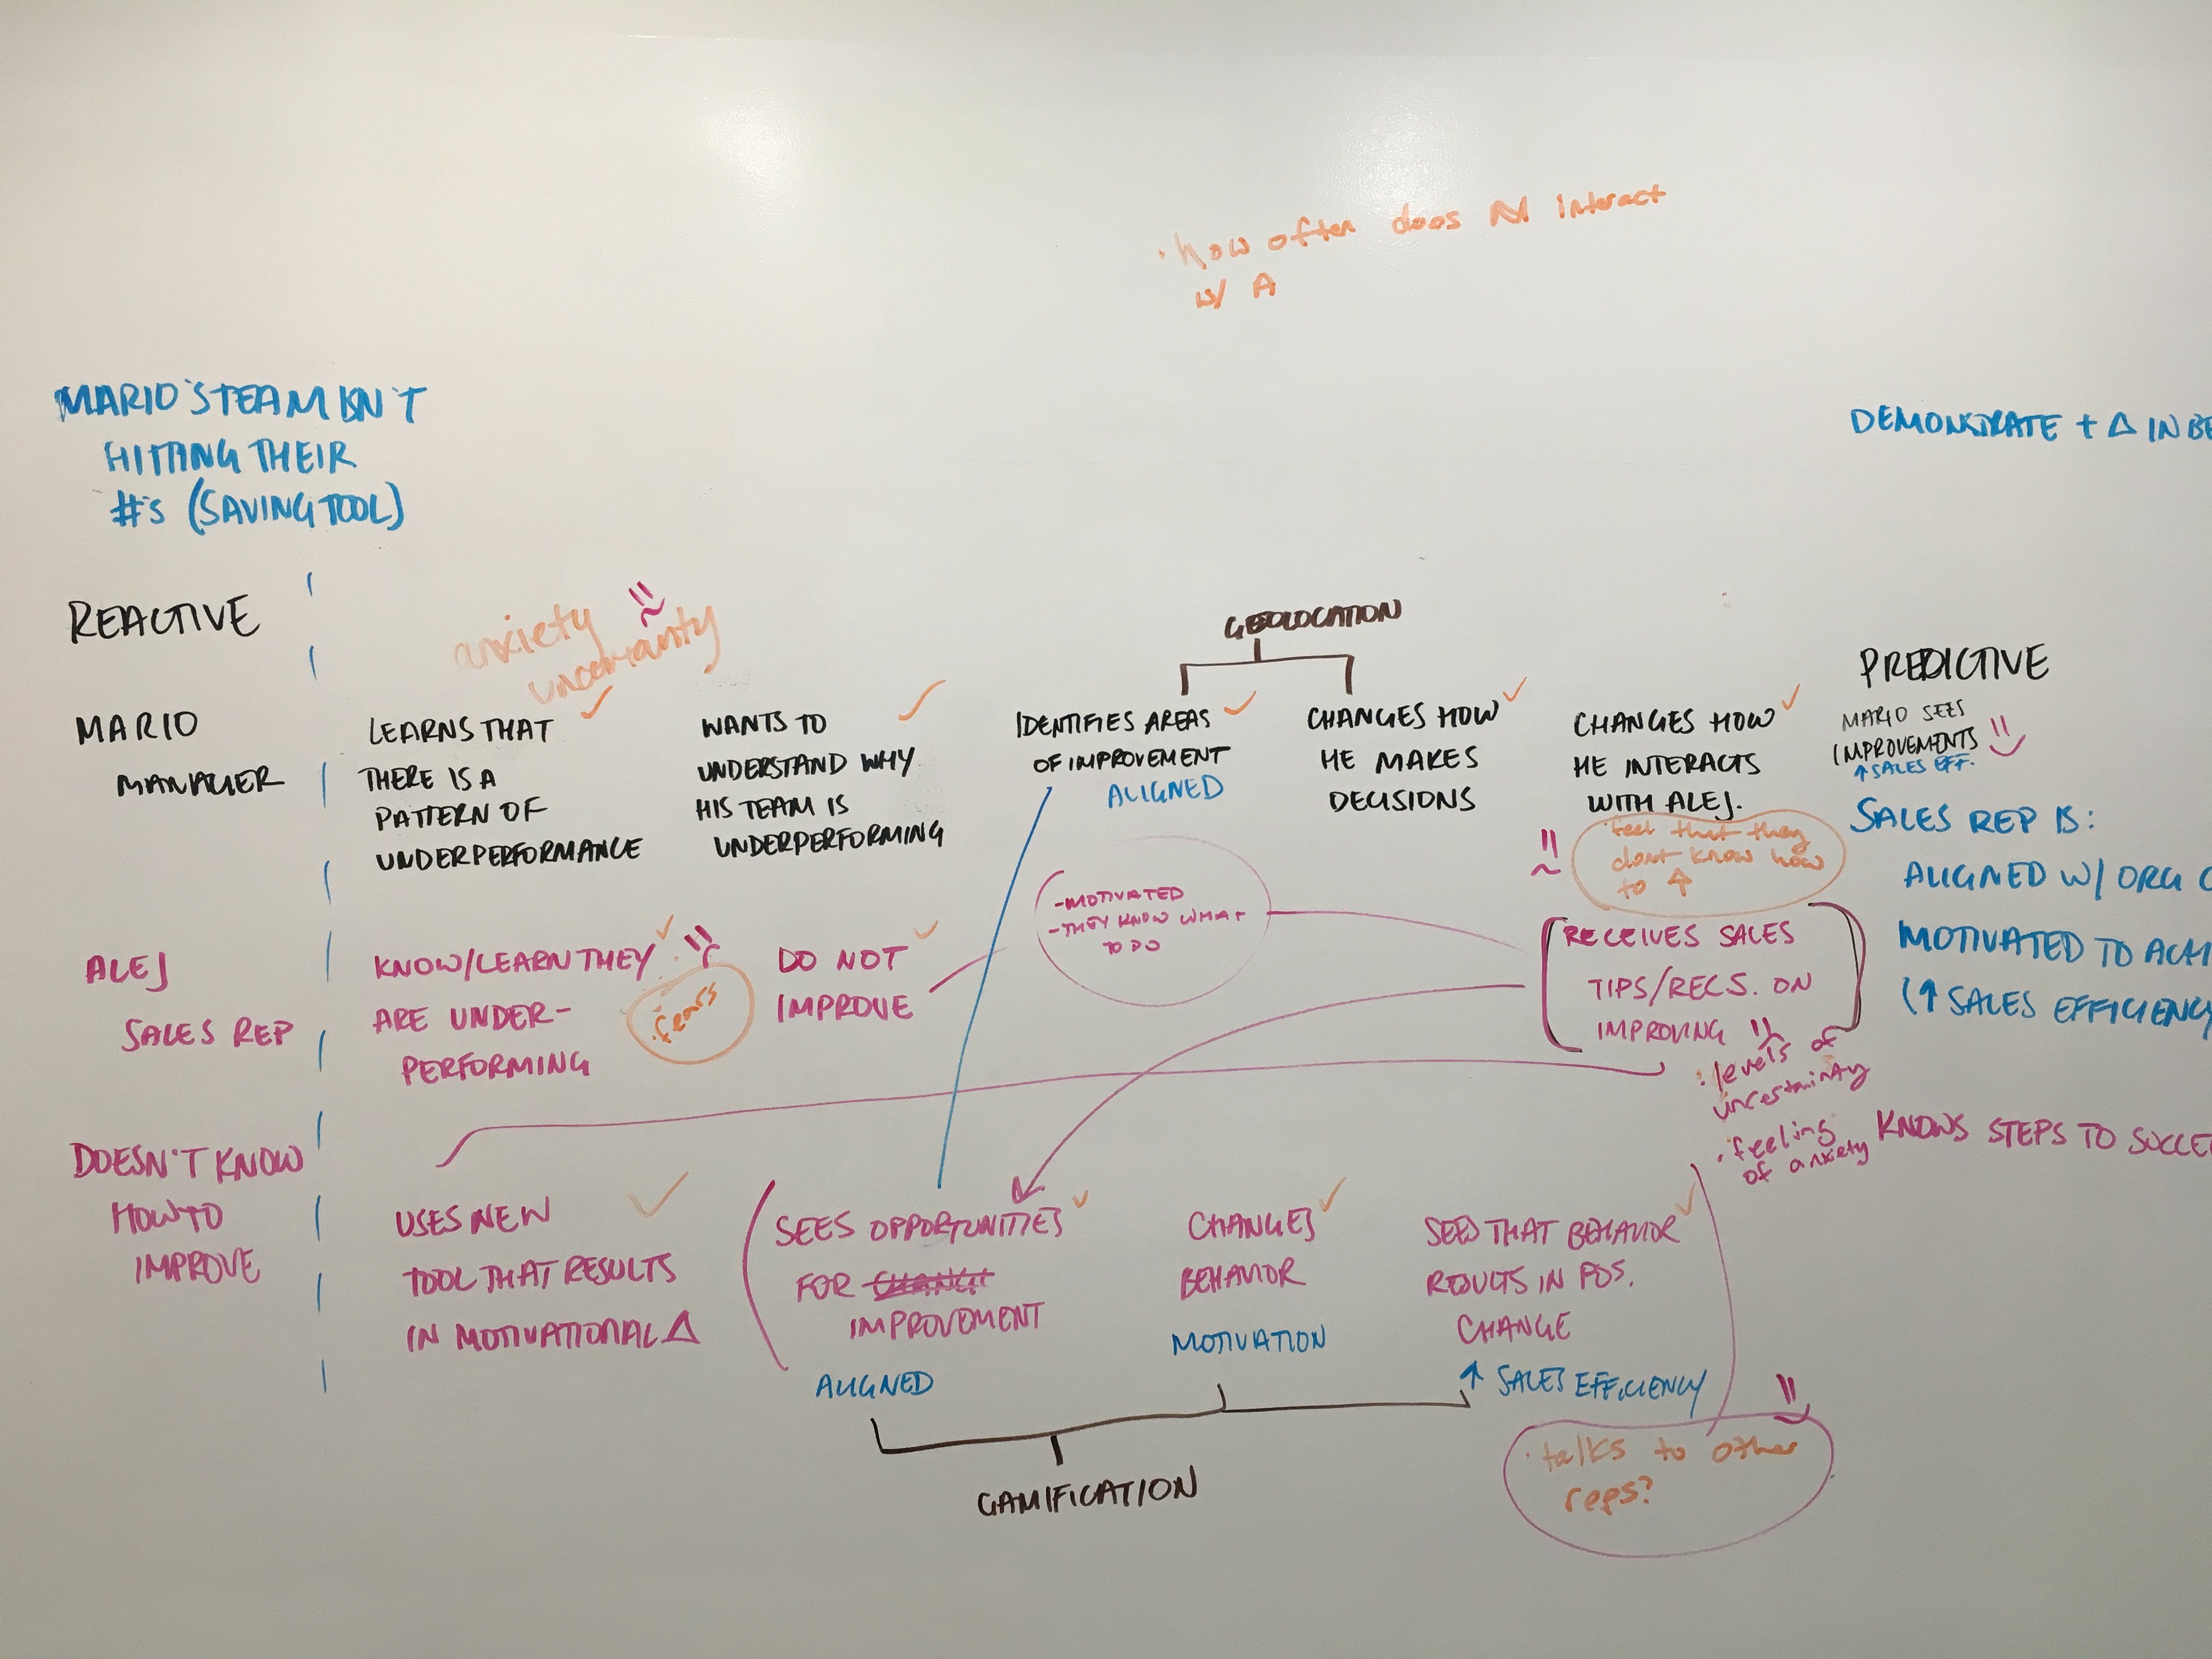 · how often does M interact
w/ A
MARIO'S TEAM ISN'T
HITTING THEIR
#'s (SAVING TOOL)
DEMONSTRATE + Δ IN BE
REACTIVE
anxiety
uncertanty
GEOLOCATION
PREDICTIVE
MARIO
MANAGER
LEARNS THAT
THERE IS A
PATTERN OF
UNDERPERFORMANCE
WANTS TO
UNDERSTAND WHY
HIS TEAM IS
UNDERPERFORMING
IDENTIFIES AREAS
OF IMPROVEMENT
ALIGNED
CHANGES HOW
HE MAKES
DECISIONS
CHANGES HOW
HE INTERACTS
WITH ALEJ.
MARIO SEES
IMPROVEMENTS
↑ SALES EFF.
SALES REP IS:
ALIGNED W/ ORG
MOTIVATED TO ACHI
(↑ SALES EFFICIENCY
· feel that they
dont know how
to ↑
- MOTIVATED
- THEY KNOW WHAT
TO DO
ALEJ
SALES REP
KNOW/LEARN THEY
ARE UNDER-
PERFORMING
· fears
DO NOT
IMPROVE
RECEIVES SALES
TIPS/RECS. ON
IMPROVING
· levels of
uncertainty
· feeling
of anxiety
KNOWS STEPS TO SUCCE
DOESN'T KNOW
HOW TO
IMPROVE
USES NEW
TOOL THAT RESULTS
IN MOTIVATIONAL Δ
SEES OPPORTUNITIES
FOR CHANGE
IMPROVEMENT
ALIGNED
CHANGES
BEHAVIOR
MOTIVATION
SEES THAT BEHAVIOR
RESULTS IN POS.
CHANGE
↑ SALES EFFICIENCY
GAMIFICATION
· talks to other
reps?